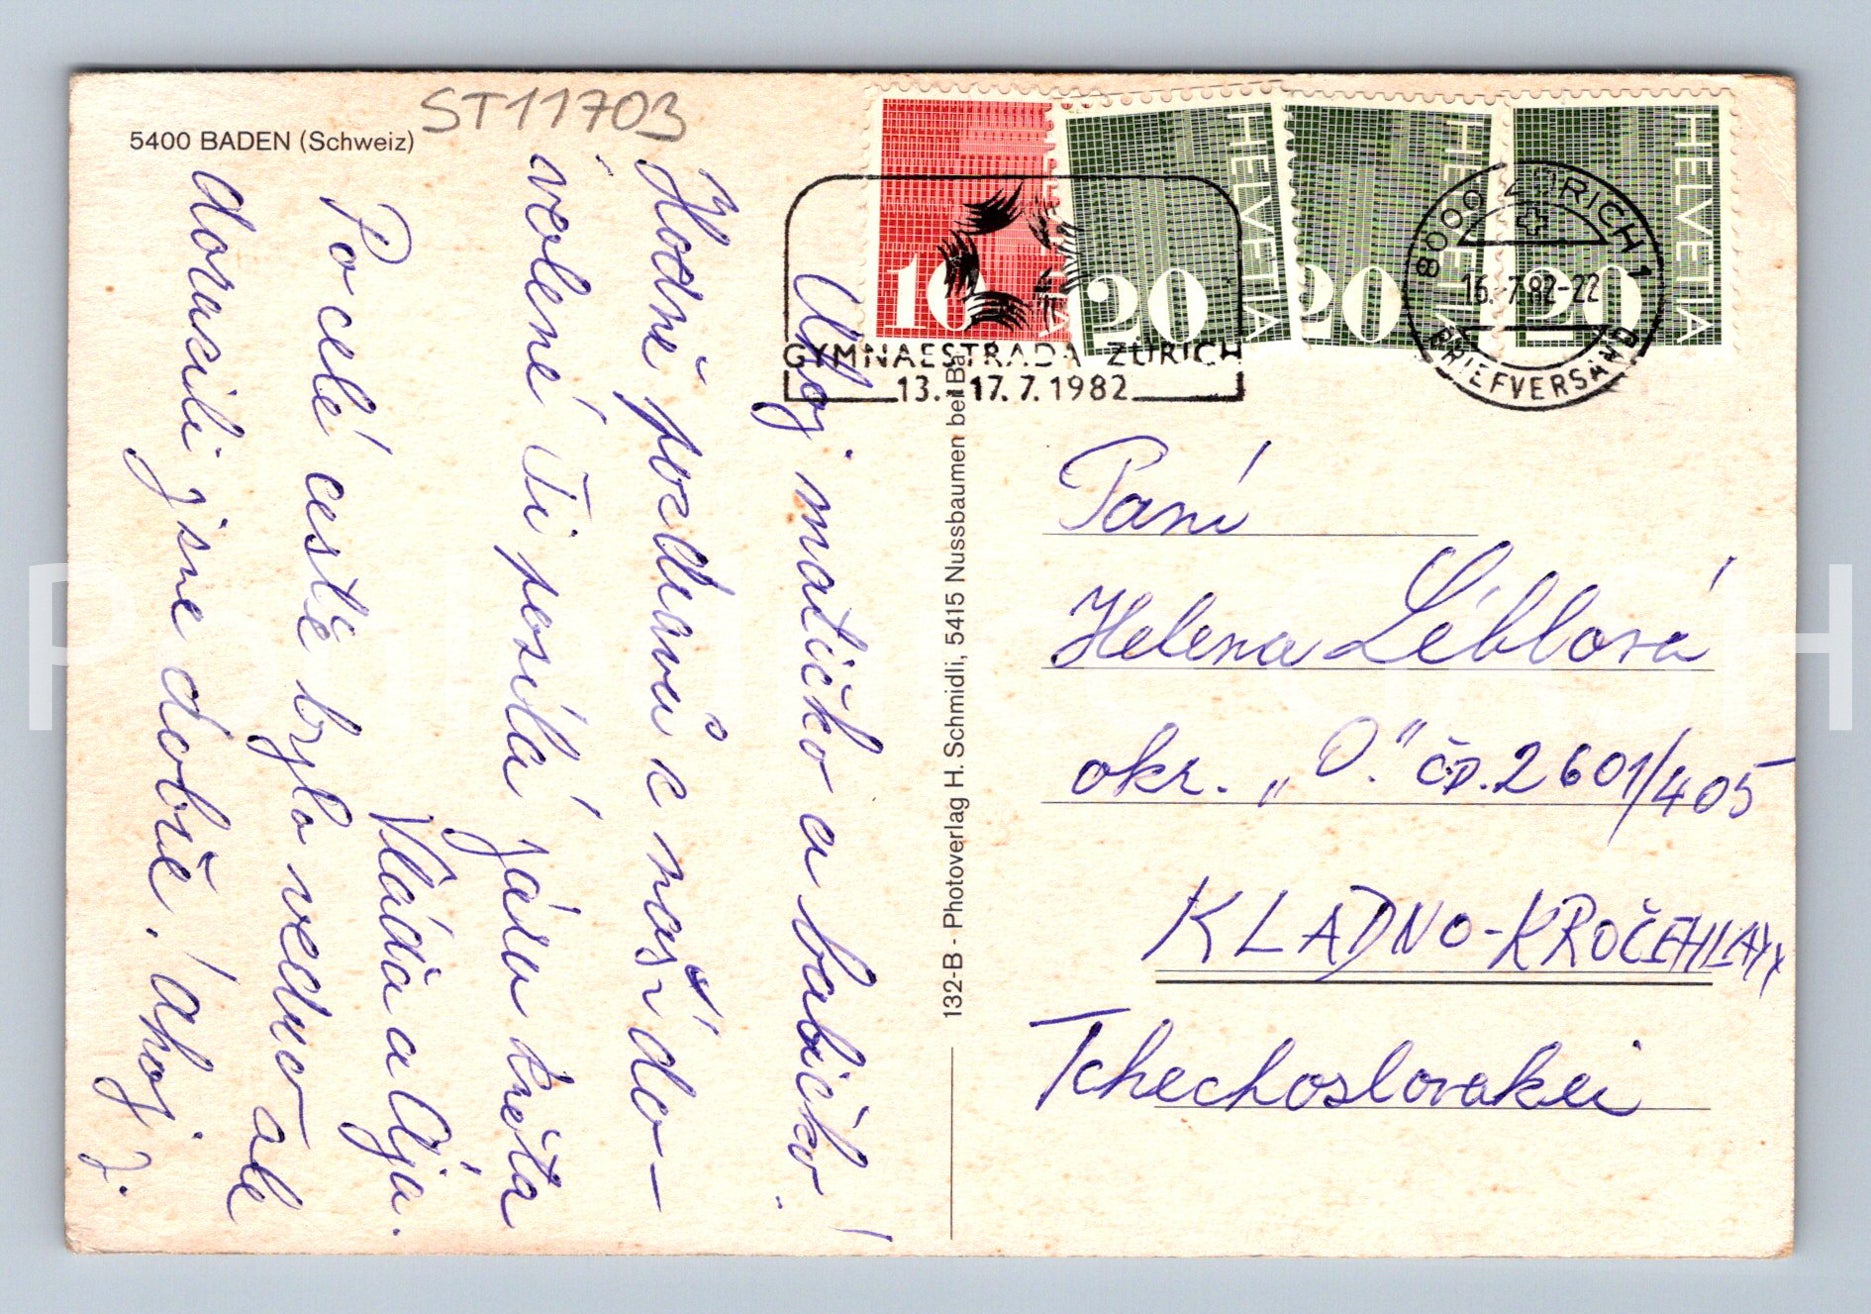 5400 BADEN (Schweiz)
ST11703
Ahoj matičko a babičko!
Hodně pozdravů z naší do-
volené Ti posílá Jára Květa
Vláďa aÁja.
Po celé cestě bylo vedro ale
dorazili jsme dobře. Ahoj
J.
132-B - Photoverlag H. Schmidli, 5415 Nussbaumen bei Ba
10 HELVETIA
20 HELVETIA
20 HELVETIA
20 HELVETIA
GYMNAESTRADA ZÜRICH
13. - 17.7.1982
8000 ZÜRICH 1
16.-7.82-22
BRIEFVERSAND
Paní
Helena Léblová
okr. „O.“ čp. 2601/405
KLADNO-KROČEHLAVY
Tchechoslovakei